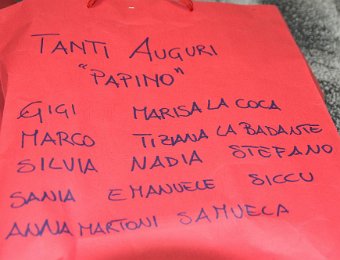 TANTI AUGURI
"PAPINO"
GIGI MARISA LA COCA
MARCO TIZIANA LA BADANTE
SILVIA NADIA STEFANO
SANIA EMANUELE SICCU
ANNA MARTONI SAMUELA